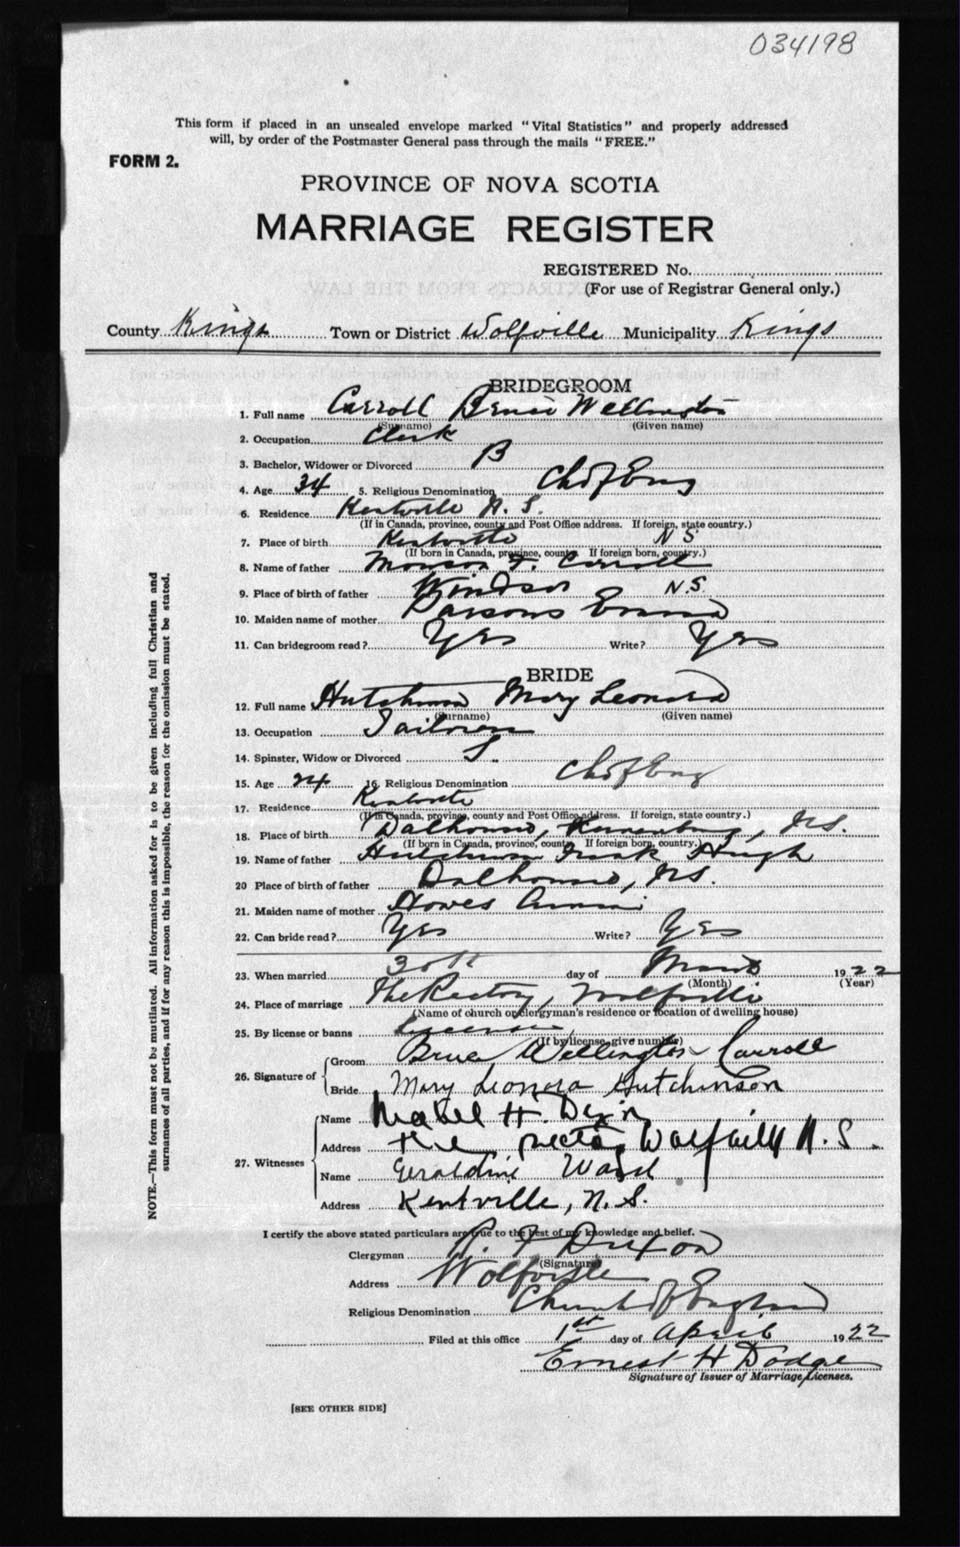 034198
This form if placed in an unsealed envelope marked "Vital Statistics" and properly addressed
will, by order of the Postmaster General pass through the mails "FREE."
FORM 2.
PROVINCE OF NOVA SCOTIA
MARRIAGE REGISTER
REGISTERED No.
(For use of Registrar General only.)
County Kings Town or District Wolfville Municipality Kings
BRIDEGROOM
1. Full name Carroll Bruce Wellington
(Surname) (Given name)
2. Occupation Clerk
3. Bachelor, Widower or Divorced B
4. Age 34 5. Religious Denomination Ch of Eng
6. Residence Kentville N. S.
(If in Canada, province, county and Post Office address. If foreign, state country.)
7. Place of birth Kentville N S
(If born in Canada, province, county. If foreign born, country.)
8. Name of father F. Carroll
9. Place of birth of father Windsor N.S.
10. Maiden name of mother Parsons Emma
11. Can bridegroom read? Yes Write? Yes
BRIDE
12. Full name Hutchinson Mary Leonora
(Surname) (Given name)
13. Occupation Tailoress
14. Spinster, Widow or Divorced S.
15. Age 24 16. Religious Denomination Ch of Eng
17. Residence Kentville
(If in Canada, province, county and Post Office address. If foreign, state country.)
18. Place of birth Dalhousie, Lunenburg, N.S.
(If born in Canada, province, county. If foreign born, country.)
19. Name of father Hutchinson Frank Hugh
20 Place of birth of father Dalhousie, N.S.
21. Maiden name of mother Howes Annie
22. Can bride read? Yes Write? Yes
23. When married 30th day of March 1922
(Month) (Year)
24. Place of marriage The Rectory, Wolfville
(Name of church or clergyman's residence or location of dwelling house)
25. By license or banns License
(If by license, give number)
26. Signature of Groom Bruce Wellington Carroll
Bride Mary Leonora Hutchinson
27. Witnesses Name Mabel H. Dixon
Address The Rectory Wolfville N. S.
Name Geraldine Ward
Address Kentville, N.S.
I certify the above stated particulars are true to the best of my knowledge and belief.
Clergyman R. F Dixon
(Signature)
Address Wolfville
Religious Denomination Church of England
Filed at this office 1st day of April 1922
Ernest H Dodge
Signature of Issuer of Marriage Licenses.
[SEE OTHER SIDE]
NOTE.—This form must not be mutilated. All information asked for is to be given including full Christian and
surnames of all parties, and if for any reason this is impossible, the reason for the omission must be stated.